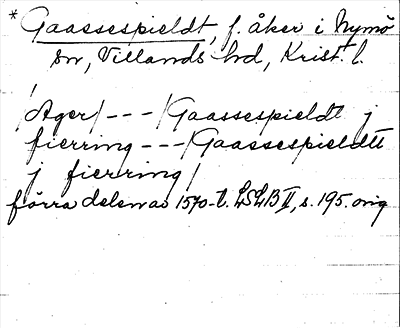 * Gaassespieldt, f. åker i Nymö
sn, Villands hd, Krist. l.
/Ager/ - - - /Gaassespieldt j
fierring - - - /Gaassespieldtt
j fierring/
förra delen av 1570-t. LSLB II, s. 195. orig